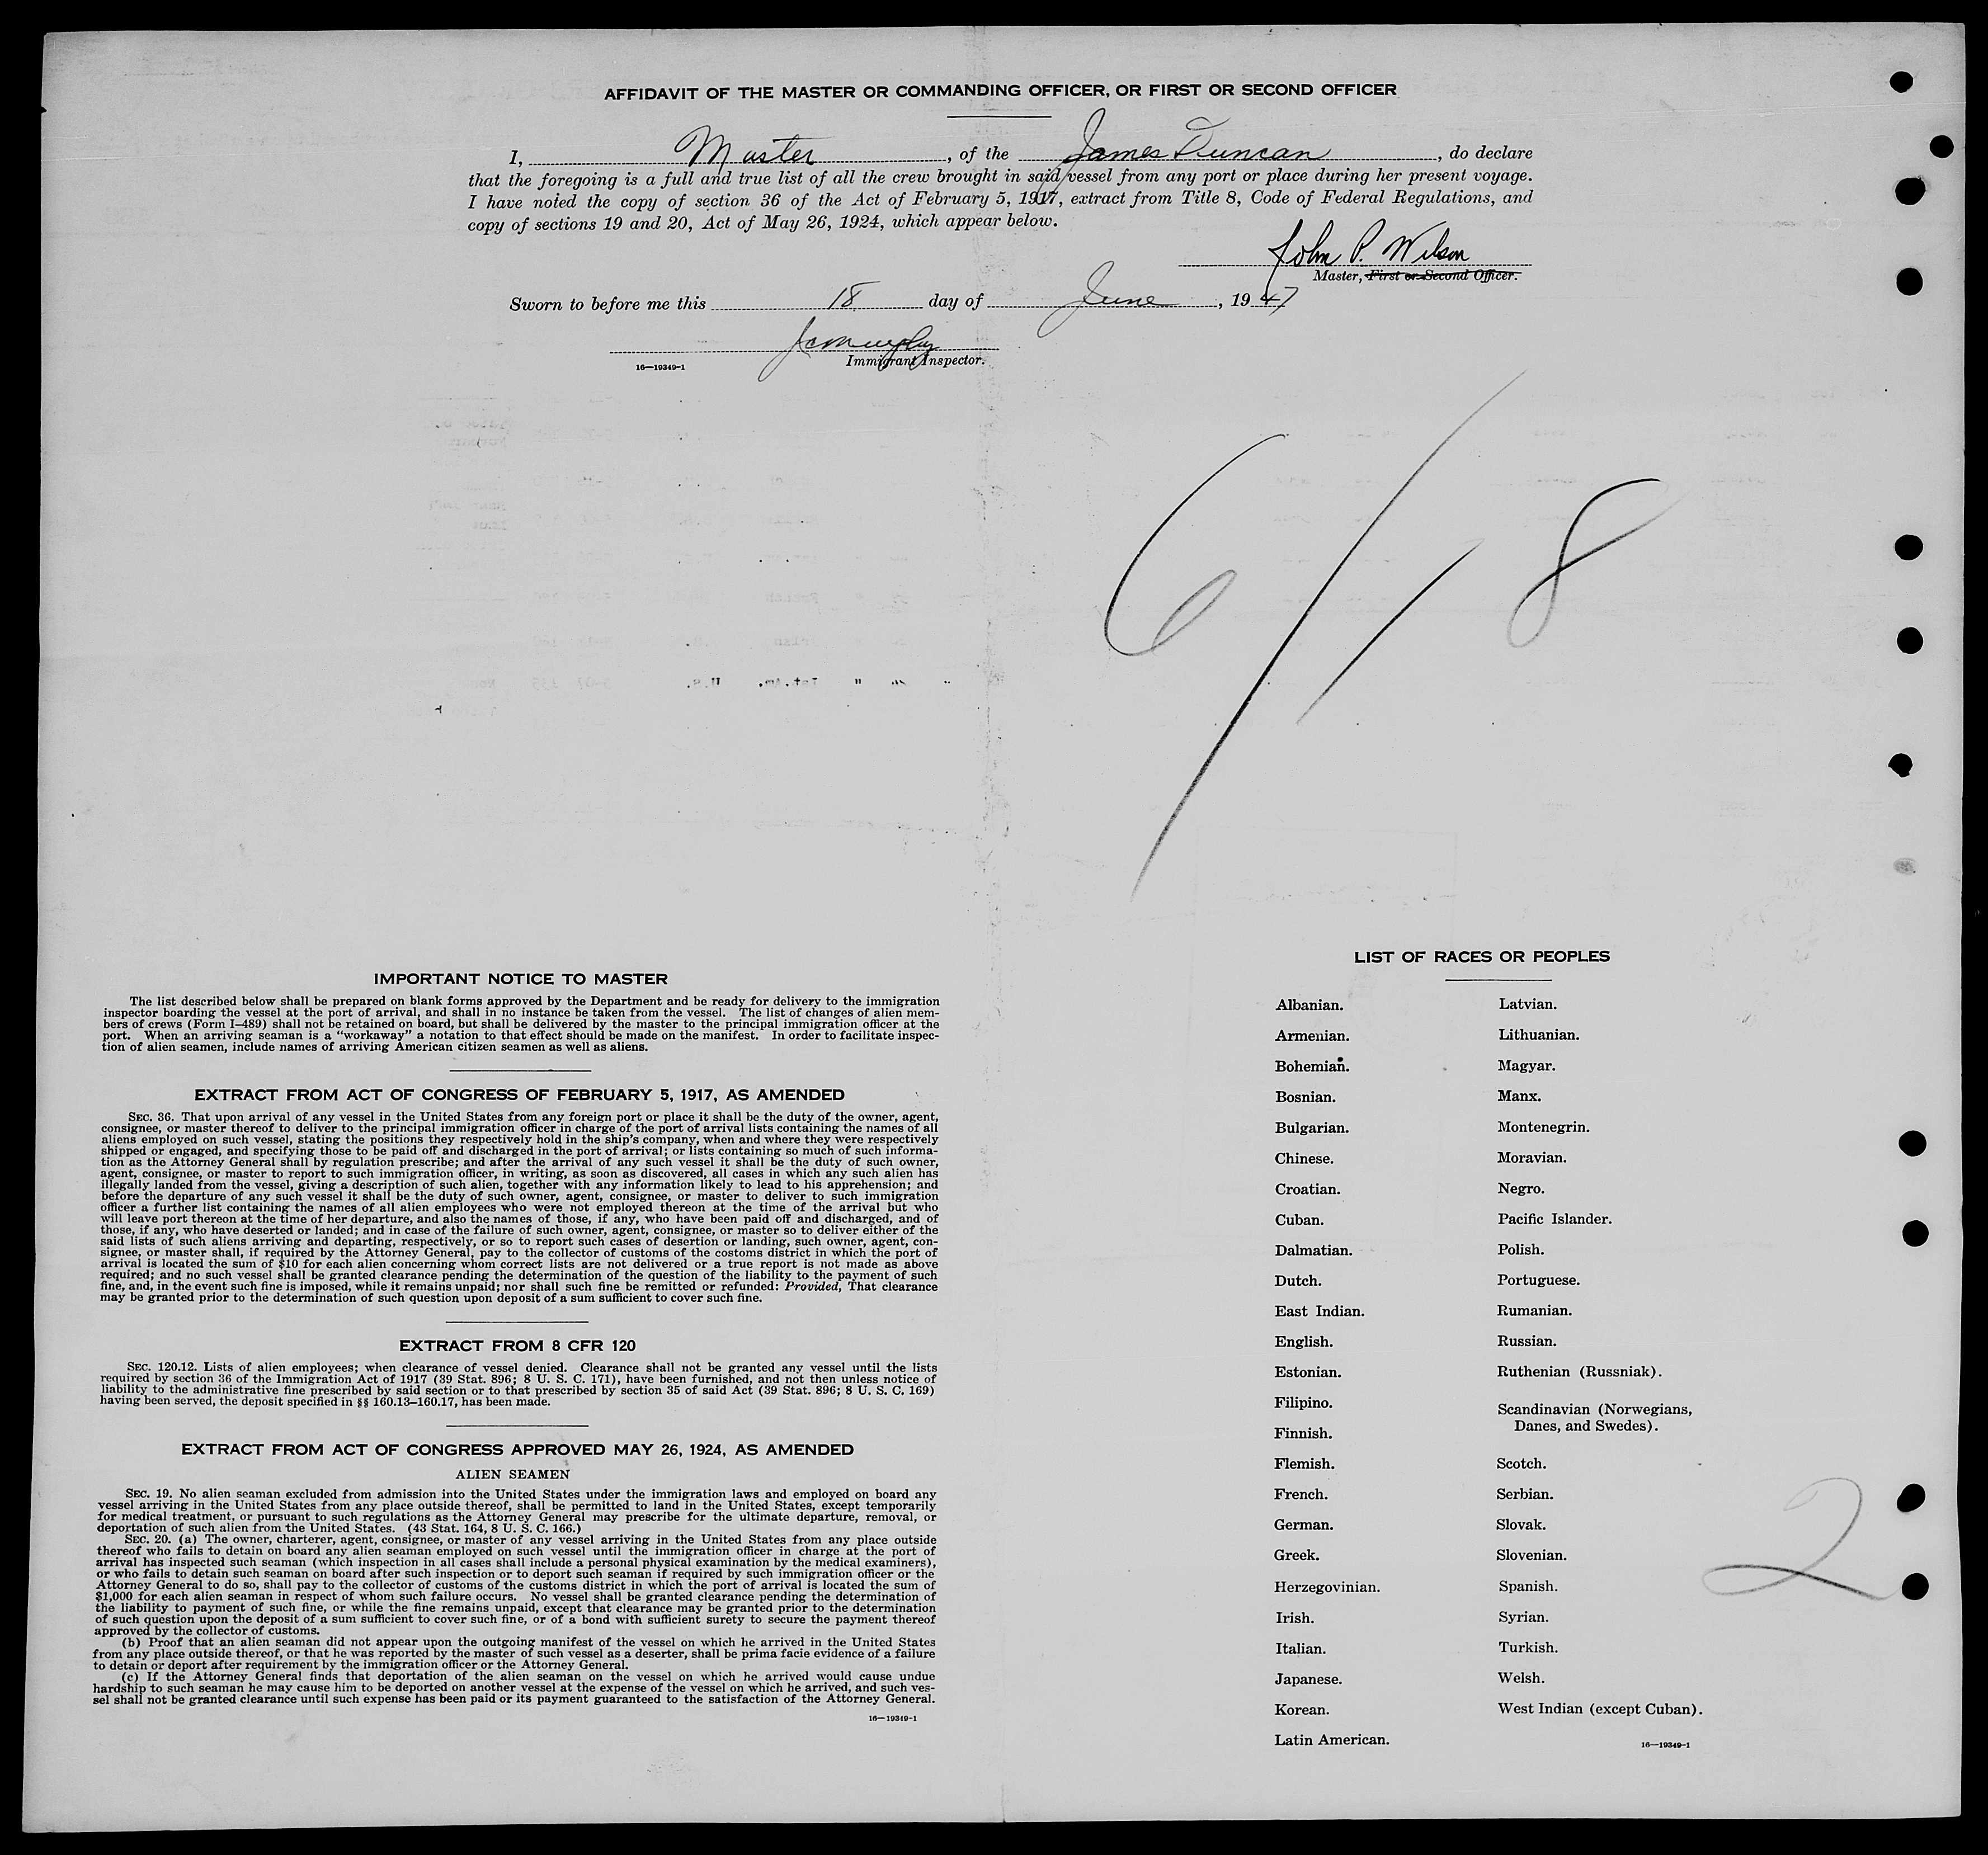 AFFIDAVIT OF THE MASTER OR COMMANDING OFFICER, OR FIRST OR SECOND OFFICER
I, Master, of the James Duncan, do declare
that the foregoing is a full and true list of all the crew brought in said vessel from any port or place during her present voyage.
I have noted the copy of section 36 of the Act of February 5, 1917, extract from Title 8, Code of Federal Regulations, and
copy of sections 19 and 20, Act of May 26, 1924, which appear below.
John P. Wilson
Master, First or Second Officer.
Sworn to before me this 18 day of June, 1947
Immigrant Inspector.
16—19349-1
6/18
IMPORTANT NOTICE TO MASTER
The list described below shall be prepared on blank forms approved by the Department and be ready for delivery to the immigration
inspector boarding the vessel at the port of arrival, and shall in no instance be taken from the vessel. The list of changes of alien mem-
bers of crews (Form I–489) shall not be retained on board, but shall be delivered by the master to the principal immigration officer at the
port. When an arriving seaman is a "workaway" a notation to that effect should be made on the manifest. In order to facilitate inspec-
tion of alien seamen, include names of arriving American citizen seamen as well as aliens.
EXTRACT FROM ACT OF CONGRESS OF FEBRUARY 5, 1917, AS AMENDED
SEC. 36. That upon arrival of any vessel in the United States from any foreign port or place it shall be the duty of the owner, agent,
consignee, or master thereof to deliver to the principal immigration officer in charge of the port of arrival lists containing the names of all
aliens employed on such vessel, stating the positions they respectively hold in the ship's company, when and where they were respectively
shipped or engaged, and specifying those to be paid off and discharged in the port of arrival; or lists containing so much of such informa-
tion as the Attorney General shall by regulation prescribe; and after the arrival of any such vessel it shall be the duty of such owner,
agent, consignee, or master to report to such immigration officer, in writing, as soon as discovered, all cases in which any such alien has
illegally landed from the vessel, giving a description of such alien, together with any information likely to lead to his apprehension; and
before the departure of any such vessel it shall be the duty of such owner, agent, consignee, or master to deliver to such immigration
officer a further list containing the names of all alien employees who were not employed thereon at the time of the arrival but who
will leave port thereon at the time of her departure, and also the names of those, if any, who have been paid off and discharged, and of
those, if any, who have deserted or landed; and in case of the failure of such owner, agent, consignee, or master so to deliver either of the
said lists of such aliens arriving and departing, respectively, or so to report such cases of desertion or landing, such owner, agent, con-
signee, or master shall, if required by the Attorney General, pay to the collector of customs of the costoms district in which the port of
arrival is located the sum of $10 for each alien concerning whom correct lists are not delivered or a true report is not made as above
required; and no such vessel shall be granted clearance pending the determination of the question of the liability to the payment of such
fine, and, in the event such fine is imposed, while it remains unpaid; nor shall such fine be remitted or refunded: Provided, That clearance
may be granted prior to the determination of such question upon deposit of a sum sufficient to cover such fine.
EXTRACT FROM 8 CFR 120
SEC. 120.12. Lists of alien employees; when clearance of vessel denied. Clearance shall not be granted any vessel until the lists
required by section 36 of the Immigration Act of 1917 (39 Stat. 896; 8 U. S. C. 171), have been furnished, and not then unless notice of
liability to the administrative fine prescribed by said section or to that prescribed by section 35 of said Act (39 Stat. 896; 8 U. S. C. 169)
having been served, the deposit specified in §§ 160.13–160.17, has been made.
EXTRACT FROM ACT OF CONGRESS APPROVED MAY 26, 1924, AS AMENDED
ALIEN SEAMEN
SEC. 19. No alien seaman excluded from admission into the United States under the immigration laws and employed on board any
vessel arriving in the United States from any place outside thereof, shall be permitted to land in the United States, except temporarily
for medical treatment, or pursuant to such regulations as the Attorney General may prescribe for the ultimate departure, removal, or
deportation of such alien from the United States. (43 Stat. 164, 8 U. S. C. 166.)
SEC. 20. (a) The owner, charterer, agent, consignee, or master of any vessel arriving in the United States from any place outside
thereof who fails to detain on board any alien seaman employed on such vessel until the immigration officer in charge at the port of
arrival has inspected such seaman (which inspection in all cases shall include a personal physical examination by the medical examiners),
or who fails to detain such seaman on board after such inspection or to deport such seaman if required by such immigration officer or the
Attorney General to do so, shall pay to the collector of customs of the customs district in which the port of arrival is located the sum of
$1,000 for each alien seaman in respect of whom such failure occurs. No vessel shall be granted clearance pending the determination of
the liability to the payment of such fine, or while the fine remains unpaid, except that clearance may be granted prior to the determination
of such question upon the deposit of a sum sufficient to cover such fine, or of a bond with sufficient surety to secure the payment thereof
approved by the collector of customs.
(b) Proof that an alien seaman did not appear upon the outgoing manifest of the vessel on which he arrived in the United States
from any place outside thereof, or that he was reported by the master of such vessel as a deserter, shall be prima facie evidence of a failure
to detain or deport after requirement by the immigration officer or the Attorney General.
(c) If the Attorney General finds that deportation of the alien seaman on the vessel on which he arrived would cause undue
hardship to such seaman he may cause him to be deported on another vessel at the expense of the vessel on which he arrived, and such ves-
sel shall not be granted clearance until such expense has been paid or its payment guaranteed to the satisfaction of the Attorney General.
16—19349-1
LIST OF RACES OR PEOPLES
Albanian.
Armenian.
Bohemian.
Bosnian.
Bulgarian.
Chinese.
Croatian.
Cuban.
Dalmatian.
Dutch.
East Indian.
English.
Estonian.
Filipino.
Finnish.
Flemish.
French.
German.
Greek.
Herzegovinian.
Irish.
Italian.
Japanese.
Korean.
Latin American.
Latvian.
Lithuanian.
Magyar.
Manx.
Montenegrin.
Moravian.
Negro.
Pacific Islander.
Polish.
Portuguese.
Rumanian.
Russian.
Ruthenian (Russniak).
Scandinavian (Norwegians,
Danes, and Swedes).
Scotch.
Serbian.
Slovak.
Slovenian.
Spanish.
Syrian.
Turkish.
Welsh.
West Indian (except Cuban).
16—19349-1
2